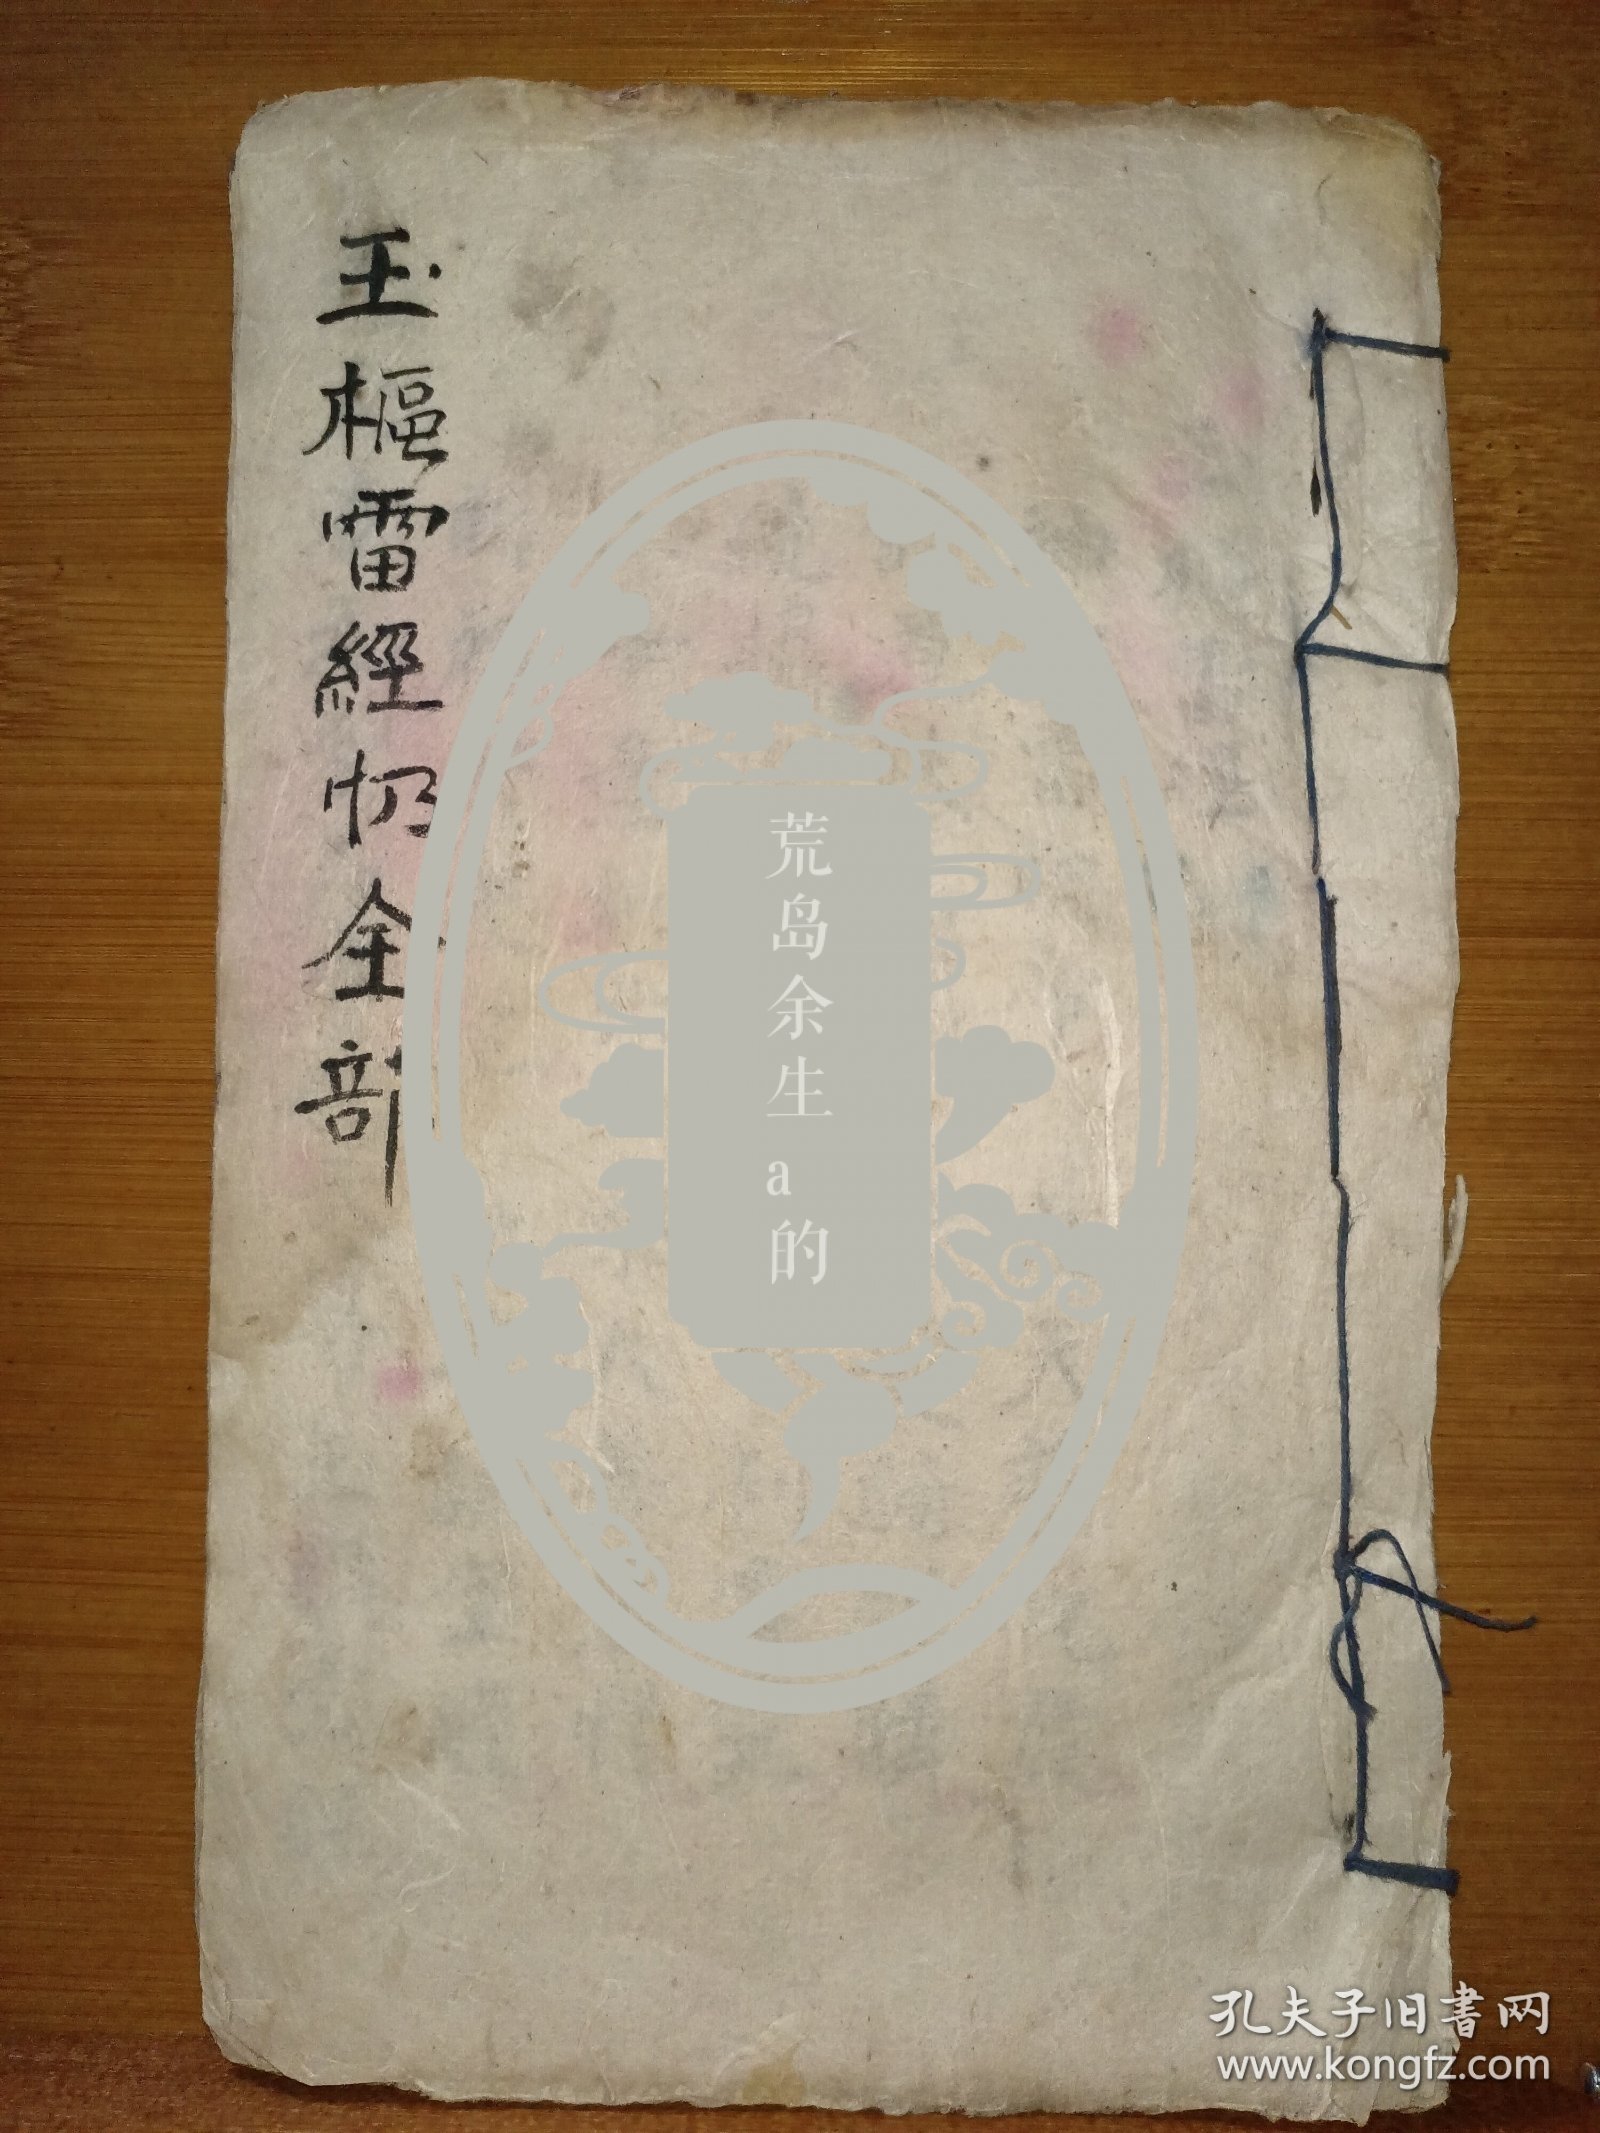 玉樞雷經忉全部
荒岛余生a的
孔夫子旧書网
www.kongfz.com